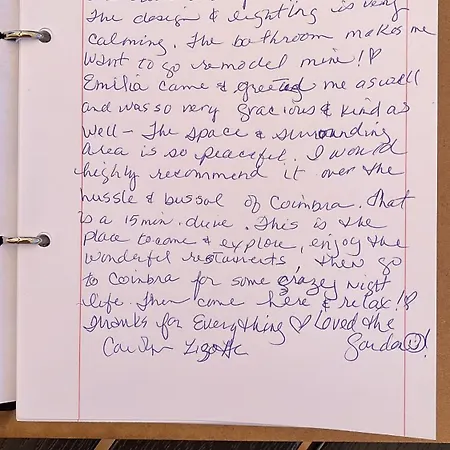 The design & lighting is very
calming. The bathroom makes me
want to go remodel mine!♡
Emilia came & greeted me aswell
and was so very gracious & kind as
well – The space & surrounding
area is so peaceful. I would
highly recommend it over the
hussle & bussal of Coimbra. That
is a 15 min. drive. This is the
place to come & explore, enjoy the
wonderful restaurants, then go
to Coimbra for some crazey night
life. Then come here & relax!♡
Thanks for Everything ♡ Loved the
Garden☺!